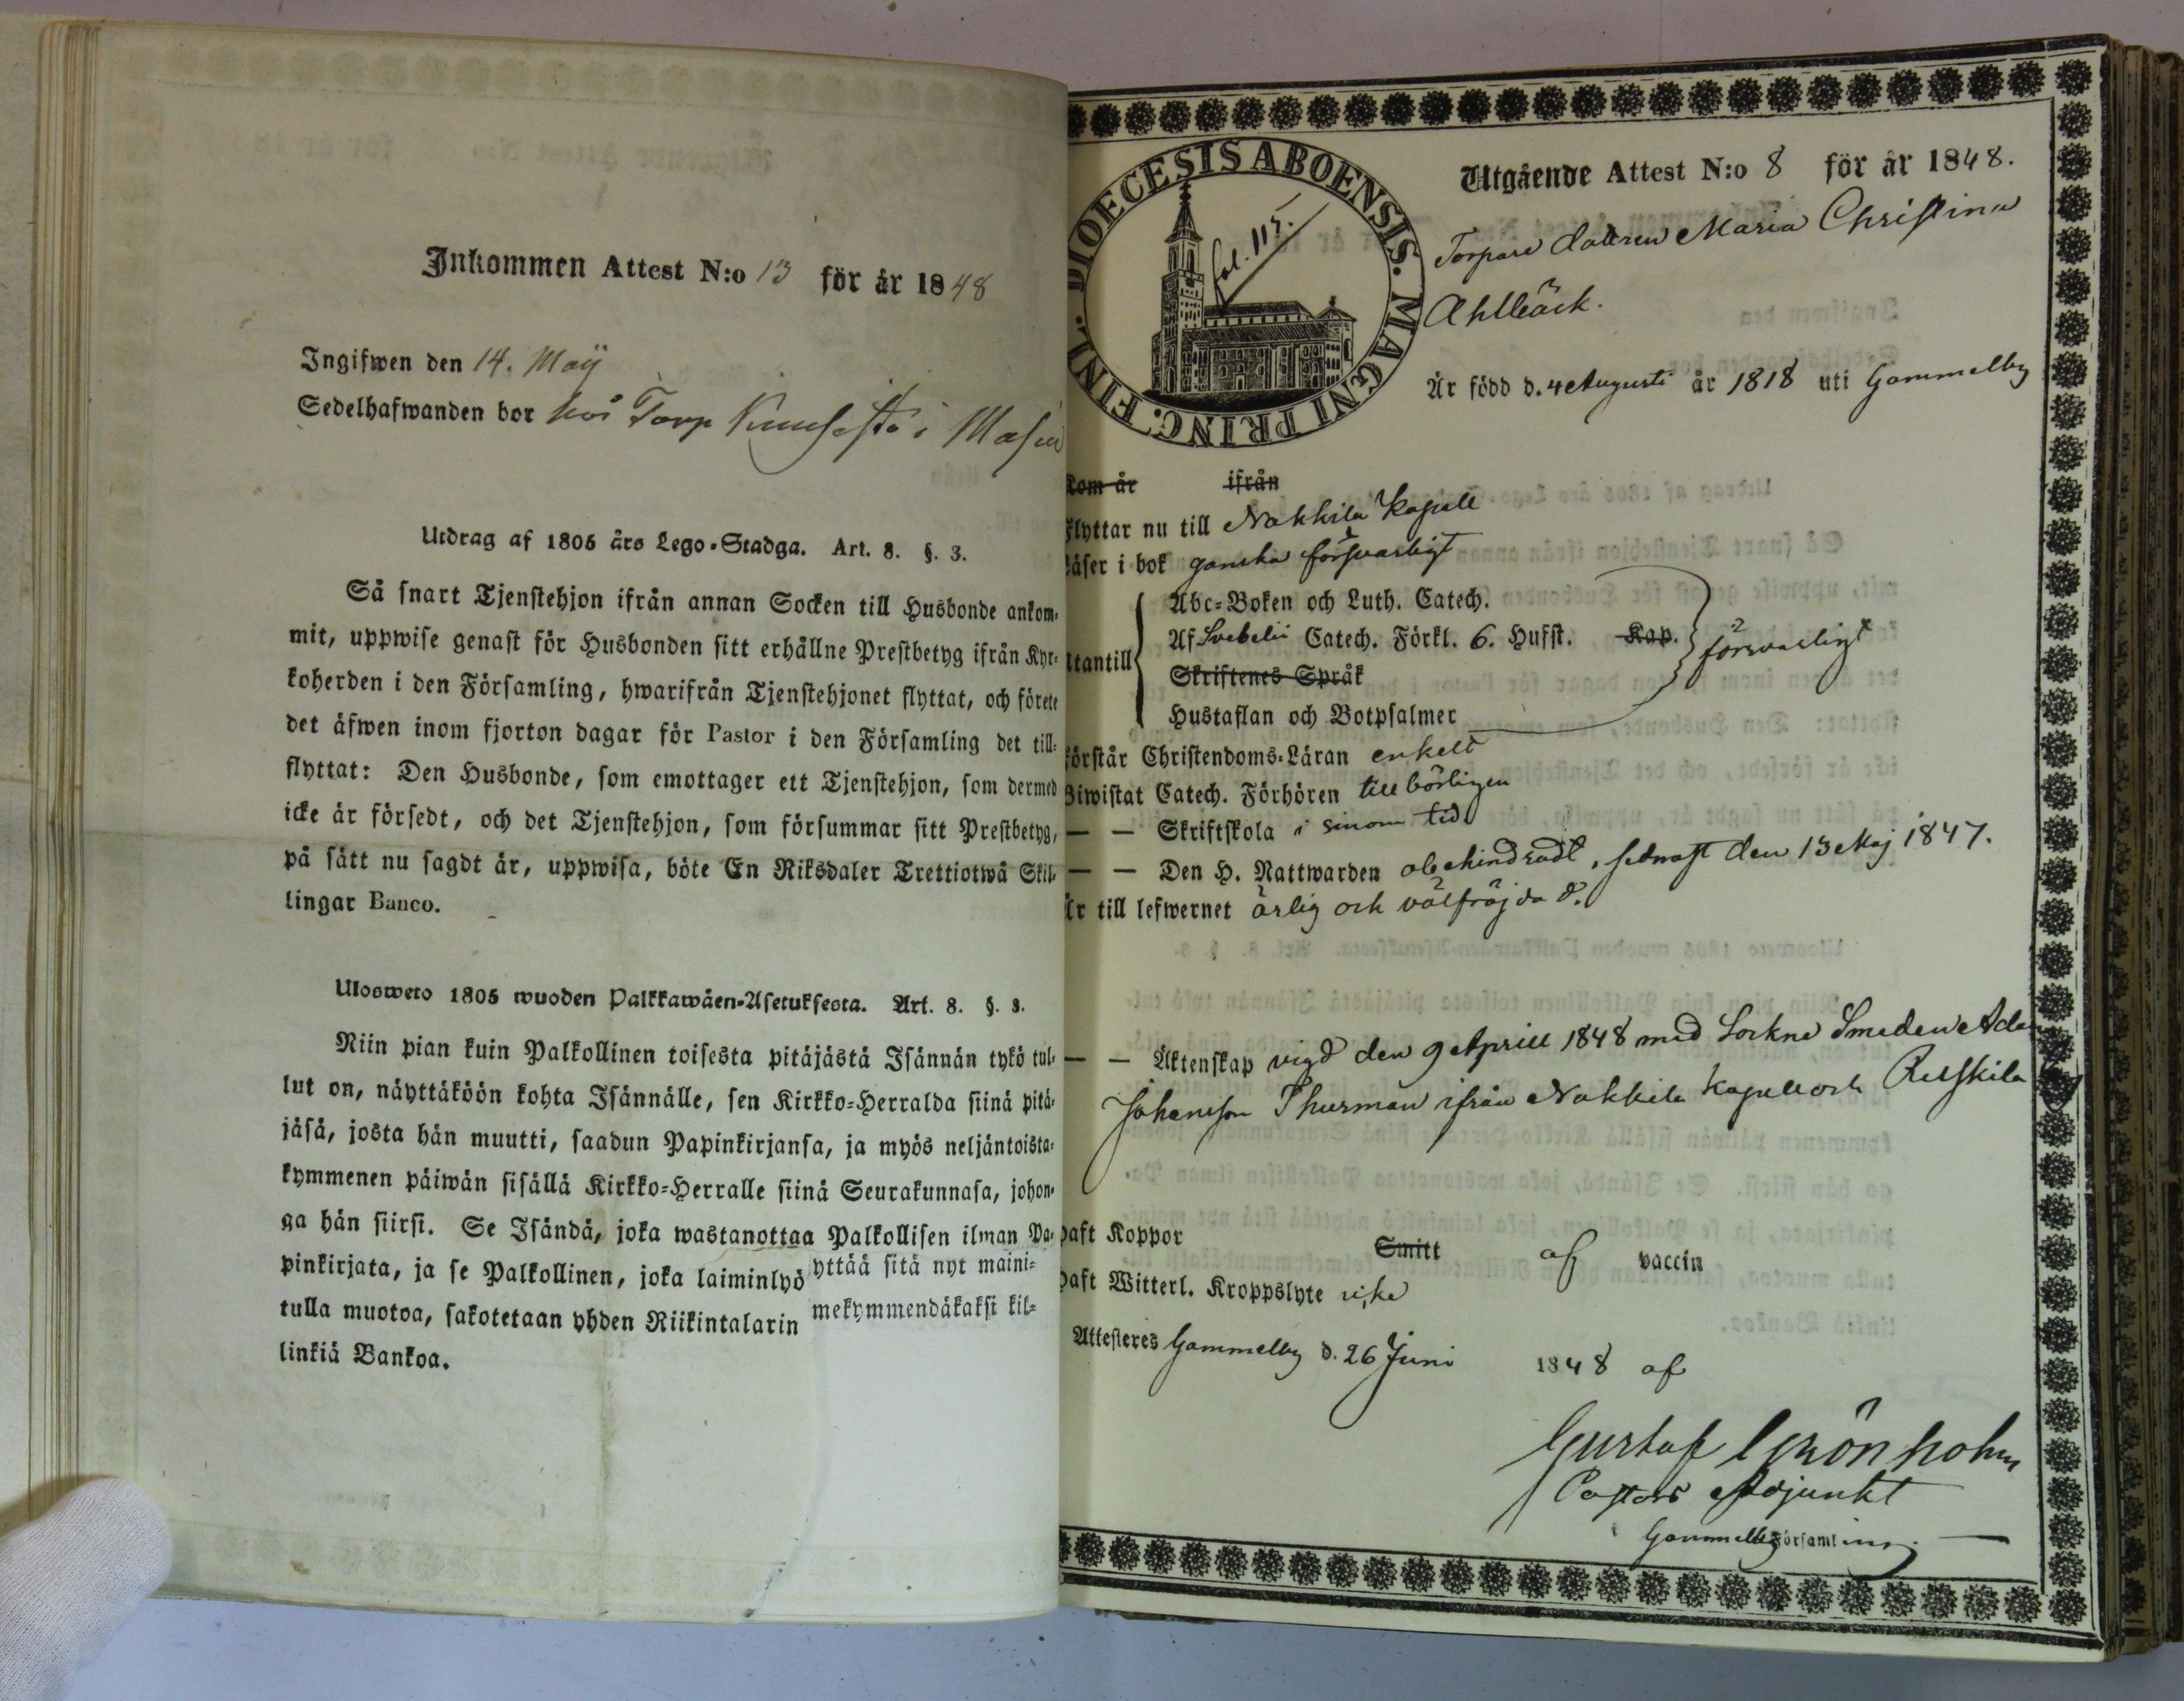 Inkommen Attest N:o 13 för år 1848
Ingifwen den 14. Maÿ
Sedelhafwanden bor hos Torp
Utdrag af 1805 års Lego-Stadga. Art. 8. §. 3.
Så snart Tjenstehjon ifrån annan Socken till Husbonde ankom-
mit, uppwise genast för Husbonden sitt erhållne Prestbetyg ifrån Kyr-
koherden i den Församling, hwarifrån Tjenstehjonet flyttat, och förete
det äfwen inom fjorton dagar för Pastor i den Församling det till-
flyttat: Den Husbonde, som emottager ett Tjenstehjon, som dermed
icke är försedt, och det Tjenstehjon, som försummar sitt Prestbetyg,
på sätt nu sagdt är, uppwisa, böte En Riksdaler Trettiotwå Skil-
lingar Banco.
Ulosweto 1805 wuoden Palkkawäen-Asetuksesta. Art. 8. §. 3.
Niin pian kuin Palkollinen toisesta pitäjästä Isännän tykö tul-
lut on, näyttäköön kohta Isännälle, sen Kirkko-Herralda siinä pitä-
jäsä, josta hän muutti, saadun Papinkirjansa, ja myös neljäntoista-
kymmenen päiwän sisällä Kirkko-Herralle siinä Seurakunnasa, johon-
ga hän siirsi. Se Isändä, joka wastanottaa Palkollisen ilman Pa-
pinkirjata, ja se Palkollinen, joka laiminlyö yttää sitä nyt maini-
tulla muotoa, sakotetaan yhden Riikintalarin mekymmendäkaksi kil-
linkiä Bankoa.
DIOECESIS ABOENSIS. MAGNI PRINC. FINL.
fol. 115.
Utgående Attest N:o 8 för år 1848.
Torpare dottren Maria Christina
Ahlbäck.
Är född d. 4 Augusti år 1818 uti Gammelby
Kom år ifrån
Flyttar nu till Nakkila Kapell
Läser i bok ganska försvarligt
Abc-Boken och Luth. Catech.
Af Svebelii Catech. Förkl. 6. Hufst. Kap.
Utantill försvarligt
Skriftenes Språk
Hustaflan och Botpsalmer
förstår Christendoms-Läran enkelt
Biwistat Catech. Förhören tillbörligen
— — Skriftskola i sinom tid
— — Den H. Nattwarden obehindradt, sednast den 13 Maj 1847.
Är till lefwernet ärlig och välfräjdad.
— — Äktenskap vigd den 9 Aprill 1848 med Sockne Smeden Adam
Johansson Thurman ifrån Nakkila Kapell och
haft Koppor Smitt af vaccin
haft Witterl. Kroppslyte icke
Attesteres Gammelby d. 26 Juni 1848 af
Gustaf Grönholm
Pastors Adjunkt
Gammelby Församling